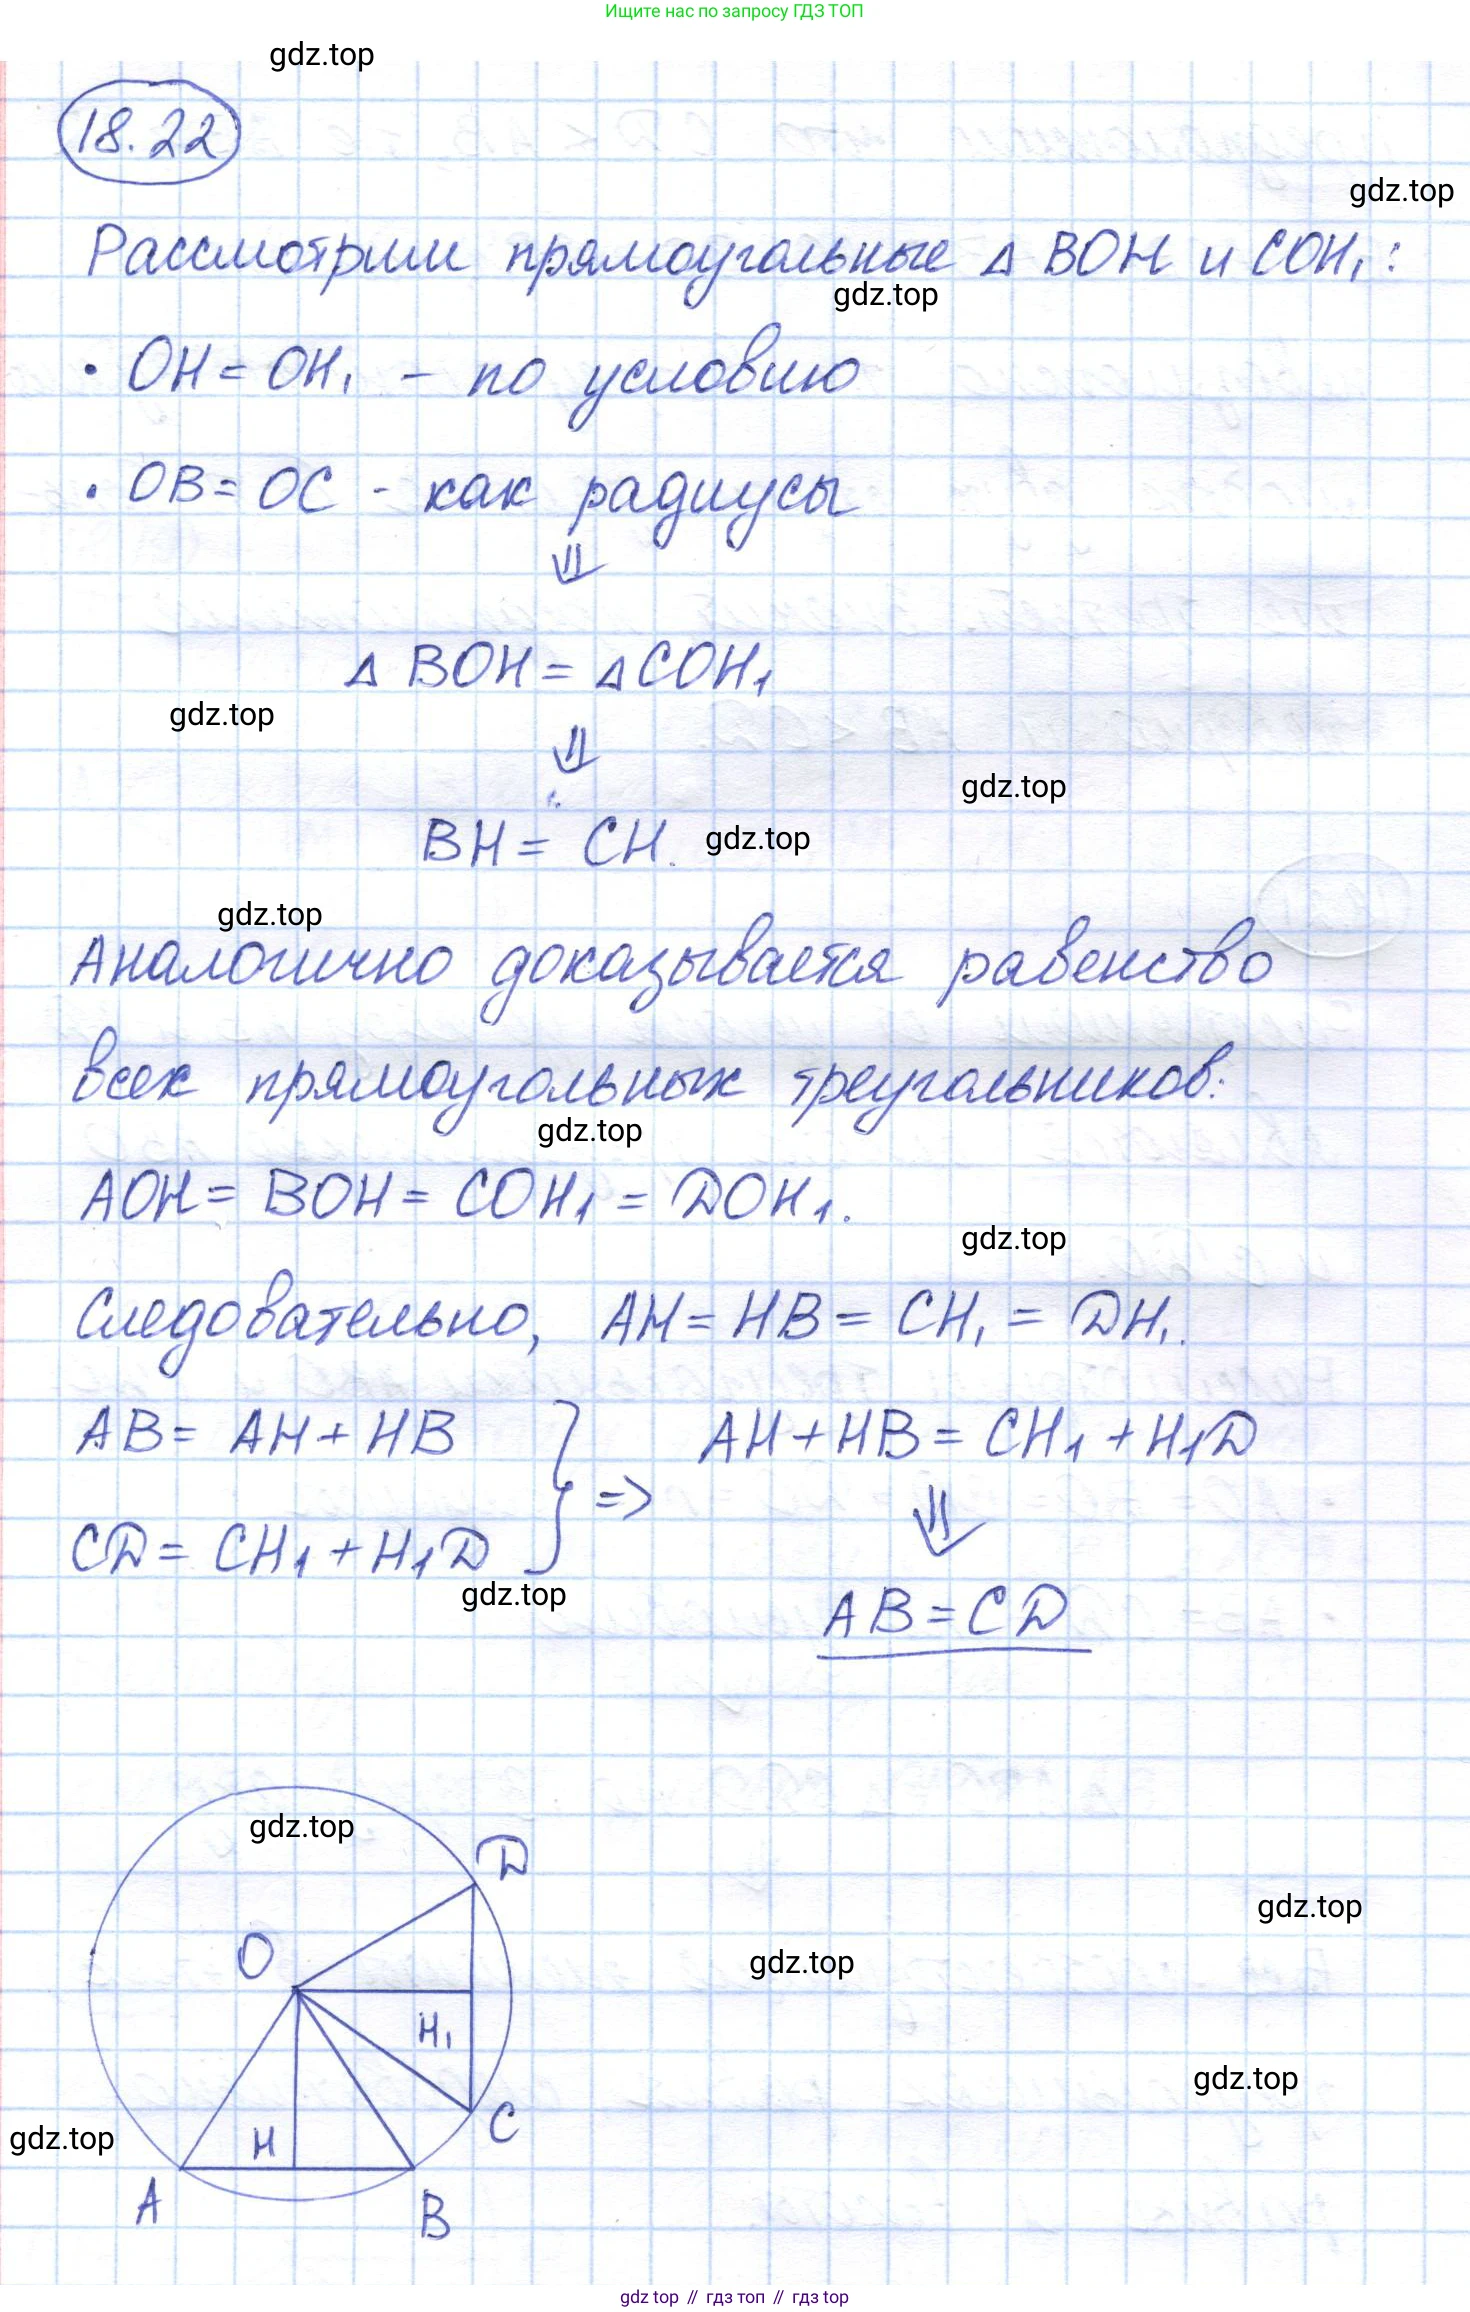 Ищите нас по запросу ГДЗ ТОП
gdz.top
18.22
gdz.top
Рассмотрим прямоугольные Δ BOH и COH₁:
gdz.top
· OH = OH₁ – по условию
· OB = OC - как радиусы
⇓
Δ BOH = Δ COH₁
gdz.top
⇓
gdz.top
BH = CH.
gdz.top
gdz.top
Аналогично доказывается равенство
всех прямоугольных треугольников:
gdz.top
AOH = BOH = COH₁ = DOH₁.
gdz.top
Следовательно, AH = HB = CH₁ = DH₁.
AB = AH + HB } => AH + HB = CH₁ + H₁D
⇓
CD = CH₁ + H₁D
gdz.top
AB = CD
gdz.top
D
gdz.top
O
gdz.top
H₁
gdz.top
C
gdz.top
H
A
B
gdz.top // гдз топ // гдз top